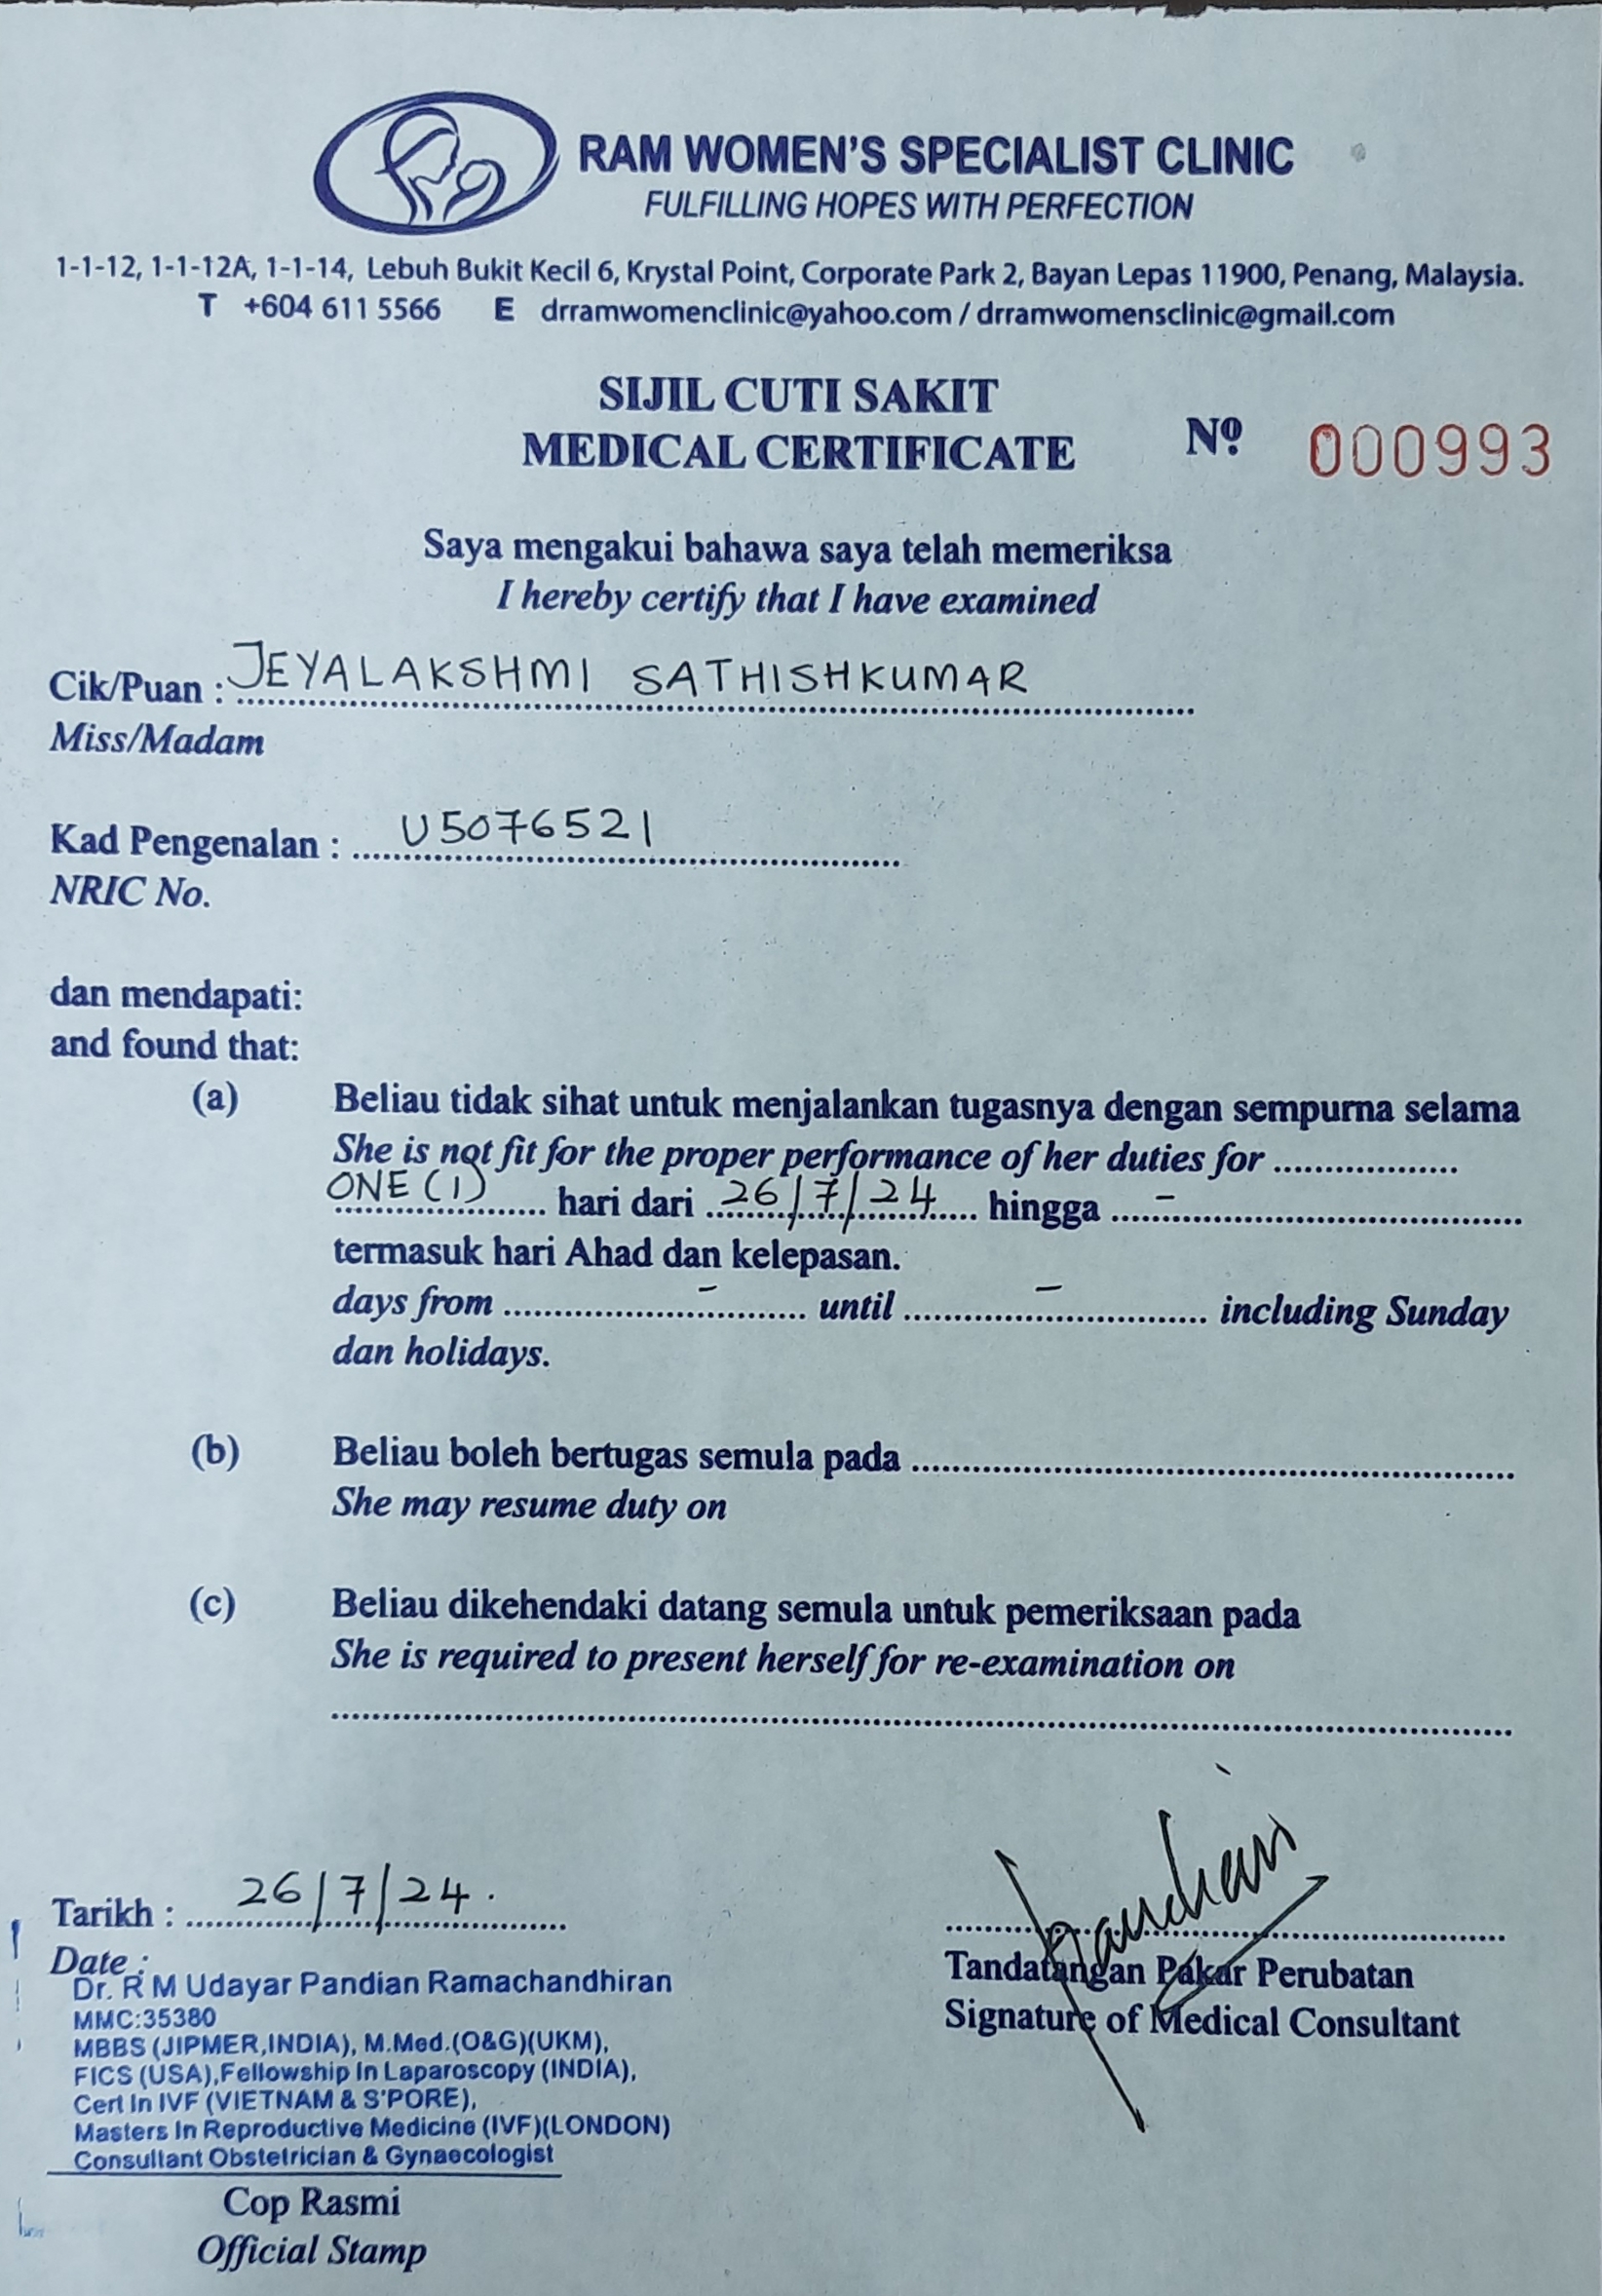 RAM WOMEN'S SPECIALIST CLINIC
FULFILLING HOPES WITH PERFECTION
1-1-12, 1-1-12A, 1-1-14, Lebuh Bukit Kecil 6, Krystal Point, Corporate Park 2, Bayan Lepas 11900, Penang, Malaysia.
T +604 611 5566 E drramwomenclinic@yahoo.com / drramwomensclinic@gmail.com
SIJIL CUTI SAKIT
MEDICAL CERTIFICATE Nº 000993
Saya mengakui bahawa saya telah memeriksa
I hereby certify that I have examined
Cik/Puan : JEYALAKSHMI SATHISHKUMAR
Miss/Madam
Kad Pengenalan : U5076521
NRIC No.
dan mendapati:
and found that:
(a) Beliau tidak sihat untuk menjalankan tugasnya dengan sempurna selama
She is not fit for the proper performance of her duties for ..................
ONE (1) hari dari 26/7/24 hingga -
termasuk hari Ahad dan kelepasan.
days from - until - including Sunday
dan holidays.
(b) Beliau boleh bertugas semula pada ..................
She may resume duty on
(c) Beliau dikehendaki datang semula untuk pemeriksaan pada
She is required to present herself for re-examination on
..................
Tarikh : 26/7/24.
Date :
Dr. R M Udayar Pandian Ramachandhiran
MMC:35380
MBBS (JIPMER,INDIA), M.Med.(O&G)(UKM),
FICS (USA),Fellowship In Laparoscopy (INDIA),
Cert In IVF (VIETNAM & S'PORE),
Masters In Reproductive Medicine (IVF)(LONDON)
Consultant Obstetrician & Gynaecologist
Cop Rasmi
Official Stamp
Pandian
Tandatangan Pakar Perubatan
Signature of Medical Consultant